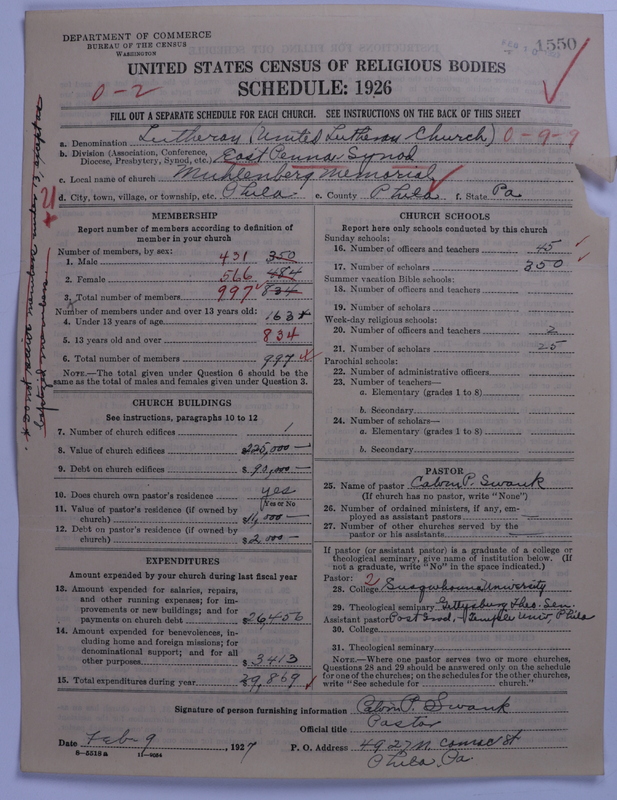 DEPARTMENT OF COMMERCE
BUREAU OF THE CENSUS
WASHINGTON
1550
UNITED STATES CENSUS OF RELIGIOUS BODIES
0-2
SCHEDULE: 1926
FILL OUT A SEPARATE SCHEDULE FOR EACH CHURCH. SEE INSTRUCTIONS ON THE BACK OF THIS SHEET
a. Denomination Lutheran (United Lutheran Church) 0-9-9
b. Division (Association, Conference, Diocese, Presbytery, Synod, etc.) East Penna Synod
c. Local name of church Muhlenberg Memorial
d. City, town, village, or township, etc. Phila e. County Phila f. State Pa
MEMBERSHIP
Report number of members according to definition of
member in your church
Number of members, by sex:
1. Male 431 350
2. Female 566 484
3. Total number of members 997 834
Number of members under and over 13 years old:
4. Under 13 years of age 163 x
5. 13 years old and over 834
6. Total number of members 997 x
NOTE.—The total given under Question 6 should be the
same as the total of males and females given under Question 3.
CHURCH BUILDINGS
See instructions, paragraphs 10 to 12
7. Number of church edifices 1
8. Value of church edifices $225,000 —
9. Debt on church edifices $ 90,000 —
10. Does church own pastor's residence yes
(Yes or No
11. Value of pastor's residence (if owned by
church) $14,000 —
12. Debt on pastor's residence (if owned by
church) $2000 —
EXPENDITURES
Amount expended by your church during last fiscal year
13. Amount expended for salaries, repairs,
and other running expenses; for im-
provements or new buildings; and for
payments on church debt $26456
14. Amount expended for benevolences, in-
cluding home and foreign missions; for
denominational support; and for all
other purposes $3413
15. Total expenditures during year $29,869
CHURCH SCHOOLS
Report here only schools conducted by this church
Sunday schools:
16. Number of officers and teachers 45
17. Number of scholars 350
Summer vacation Bible schools:
18. Number of officers and teachers
19. Number of scholars
Week-day religious schools:
20. Number of officers and teachers 2
21. Number of scholars 25
Parochial schools:
22. Number of administrative officers
23. Number of teachers—
a. Elementary (grades 1 to 8)
b. Secondary
24. Number of scholars—
a. Elementary (grades 1 to 8)
b. Secondary
PASTOR
25. Name of pastor Calvin P. Swank
(If church has no pastor, write "None")
26. Number of ordained ministers, if any, em-
ployed as assistant pastors —
27. Number of other churches served by the
pastor or his assistants —
If pastor (or assistant pastor) is a graduate of a college or
theological seminary, give name of institution below. (If
not a graduate, write "No" in the space indicated.)
Pastor: 2
28. College Susquehanna University
29. Theological seminary Gettysburg Theo. Sem.
Assistant pastor Post Grad. - Temple Univ, Phila
30. College
31. Theological seminary
NOTE.—Where one pastor serves two or more churches,
Questions 28 and 29 should be answered only on the schedule
for one of the churches; on the schedules for the other churches,
write "See schedule for church."
Signature of person furnishing information Calvin P. Swank
Official title Pastor
Date Feb 9, 1927 P. O. Address 4927 N Camac St
8—5518 a 11—9034 Phila. Pa.